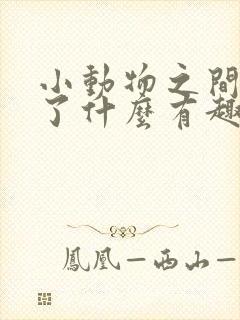 小動物之間
了什麼有趣
鳳凰—西山—